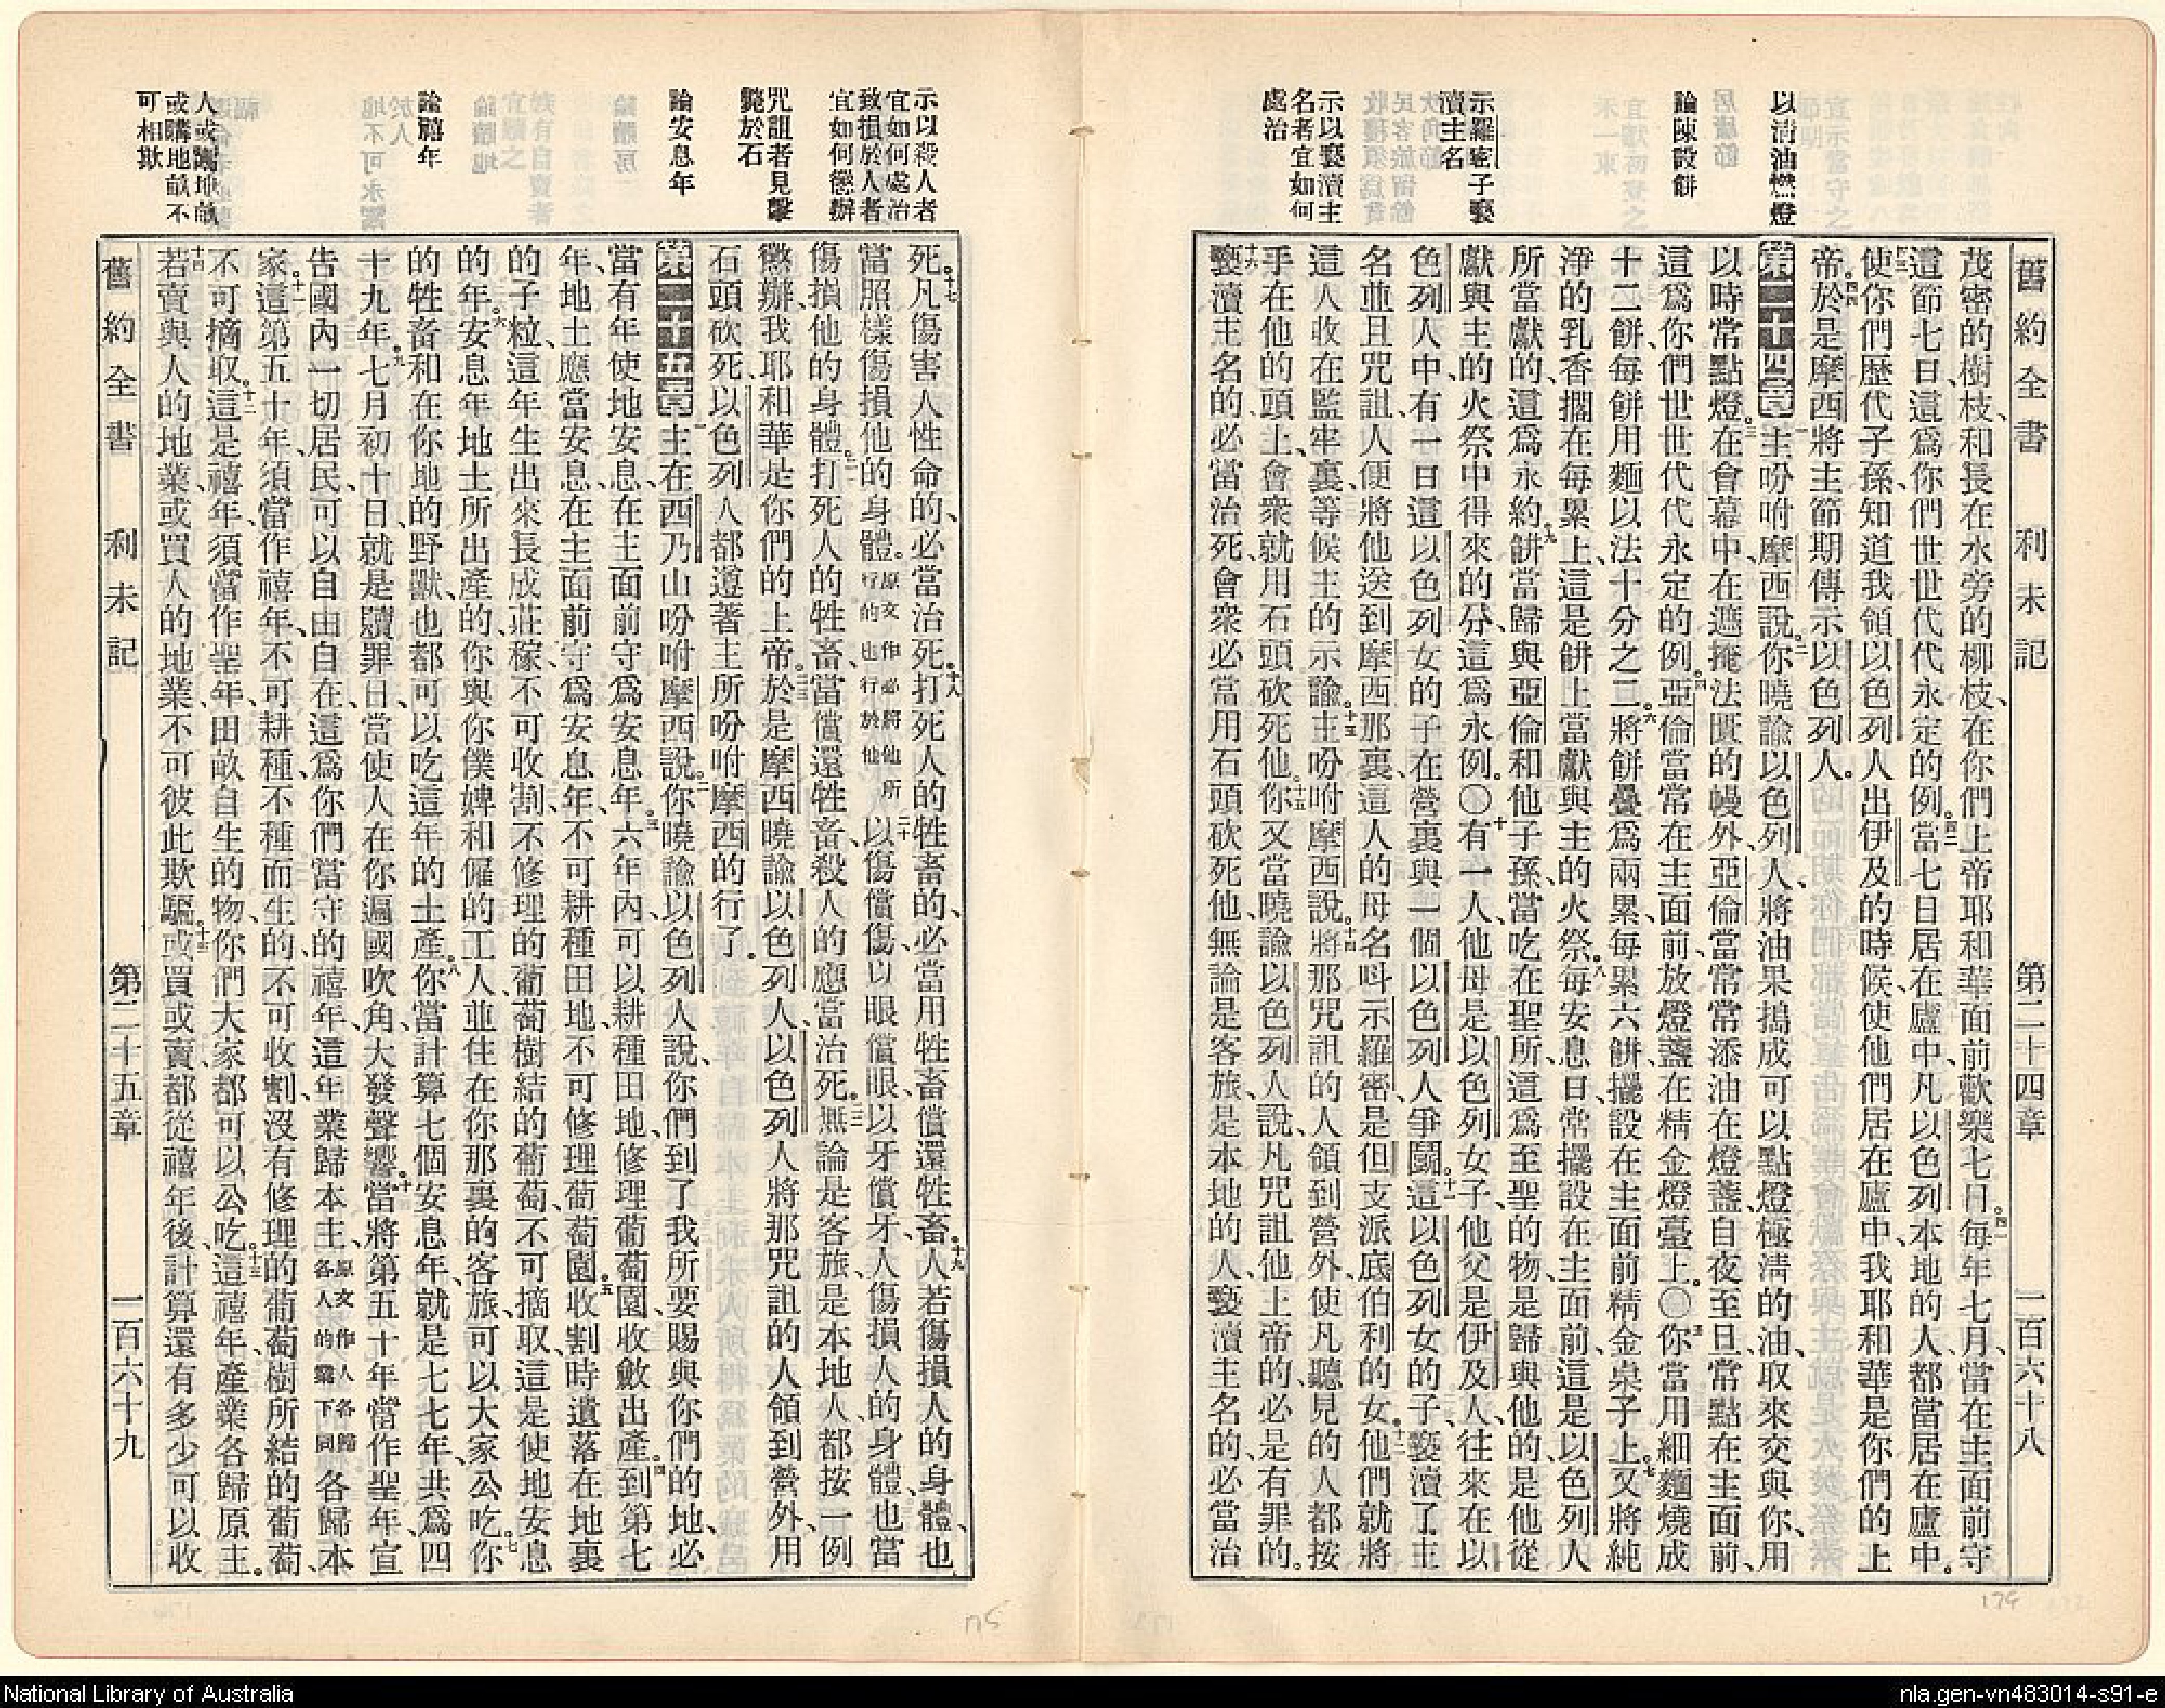 舊約全書 利未記 第二十四章 一百六十八
以淸油燃燈
論陳設餅
示羅密子褻
瀆主名
示以褻瀆主
名者宜如何
處治
茂密的樹枝、和長在水旁的柳枝、在你們上帝耶和華面前歡樂七日。四一每年七月、當在主面前守
這節七日、這爲你們世世代代永定的例。四二當七日居在廬中、凡以色列本地的人、都當居在廬中。
四三使你們歷代子孫知道我領以色列人出伊及的時候、使他們居在廬中、我耶和華是你們的上
帝。四四於是摩西將主節期傳示以色列人。
第二十四章 一主吩咐摩西說、二你曉諭以色列人、將油果搗成可以點燈極淸的油、取來交與你、用
以時常點燈。三在會幕中、在遮掩法匱的幔外、亞倫當常常添油在燈盞、自夜至旦、常點在主面前、
這爲你們世世代代永定的例。四亞倫當常在主面前、放燈盞在精金燈臺上。〇五你當用細麵燒成
十二餅、每餅用麵以法十分之二。六將餅疊爲兩累、每累六餅、擺設在主面前精金桌子上。七又將純
淨的乳香擱在每累上、這是餅上當獻與主的火祭。八每安息日、常擺設在主面前、這是以色列人
所當獻的、這爲永約。九餅當歸與亞倫和他子孫、當吃在聖所、這爲至聖的物、是歸與他的、是他從
獻與主的火祭中得來的分、這爲永例。〇十有一人、他母是以色列女子、他父是伊及人、往來在以
色列人中、有一日這以色列女的子、在營裏與一個以色列人爭鬬。十一這以色列女的子、褻瀆了主
名、並且咒詛、人便將他送到摩西那裏、這人的母名呌示羅密、是但支派底伯利的女。十二他們就將
這人收在監牢裏、等候主的示諭。十三主吩咐摩西說、十四將那咒詛的人領到營外、使凡聽見的人、都按
手在他的頭上、會衆就用石頭砍死他。十五你又當曉諭以色列人說、凡咒詛他上帝的、必是有罪的。
十六褻瀆主名的、必當治死、會衆必當用石頭砍死他、無論是客旅、是本地的人、褻瀆主名的、必當治
示以殺人者
宜如何處治
致損於人者
宜如何懲辦
咒詛者見擊
斃於石
論安息年
論禧年
人或鬻地畝
或購地畝不
可相欺
死。十七凡傷害人性命的、必當治死。十八打死人的牲畜的、必當用牲畜償還牲畜。十九人若傷損人的身體、也
當照樣傷損他的身體。原文作必將他所行的也行於他二十以傷償傷、以眼償眼、以牙償牙、人傷損人的身體、也當
傷損他的身體。二一打死人的牲畜、當償還牲畜、殺人的應當治死。二二無論是客旅、是本地人、都按一例
懲辦、我耶和華是你們的上帝。二三於是摩西曉諭以色列人、以色列人將那咒詛的人領到營外、用
石頭砍死、以色列人都遵著主所吩咐摩西的行了。
第二十五章 一主在西乃山吩咐摩西說、二你曉諭以色列人說、你們到了我所要賜與你們的地、必
當有年使地安息、在主面前守爲安息年。三六年內、可以耕種田地、修理葡萄園、收斂出產。四到第七
年、地土應當安息、在主面前守爲安息年、不可耕種田地、不可修理葡萄園。五收割時遺落在地裏
的子粒、這年生出來長成莊稼、不可收割、不修理的葡萄樹結的葡萄、不可摘取、這是使地安息
的年。六安息年地土所出產的、你與你僕婢和僱的工人、並住在你那裏的客旅、可以大家公吃。七你
的牲畜和在你地的野獸、也都可以吃這年的土產。八你當計算七個安息年、就是七七年、共爲四
十九年。九七月初十日、就是贖罪日、當使人在你遍國吹角、大發聲響。十當將第五十年當作聖年、宣
告國內一切居民、可以自由自在、這爲你們當守的禧年、這年業歸本主、原文作人各歸各人的業下同各歸本
家。十一這第五十年、須當作禧年、不可耕種、不種而生的、不可收割、沒有修理的葡萄樹所結的葡萄、
不可摘取。十二這是禧年、須當作聖年、田畝自生的物、你們大家都可以公吃。十三這禧年、產業各歸原主。
十四若賣與人的地業、或買人的地業、不可彼此欺騙。十五或買或賣、都從禧年後計算、還有多少可以收
舊約全書 利未記 第二十五章 一百六十九
175
174
National Library of Australia
nla.gen-vn483014-s91-e